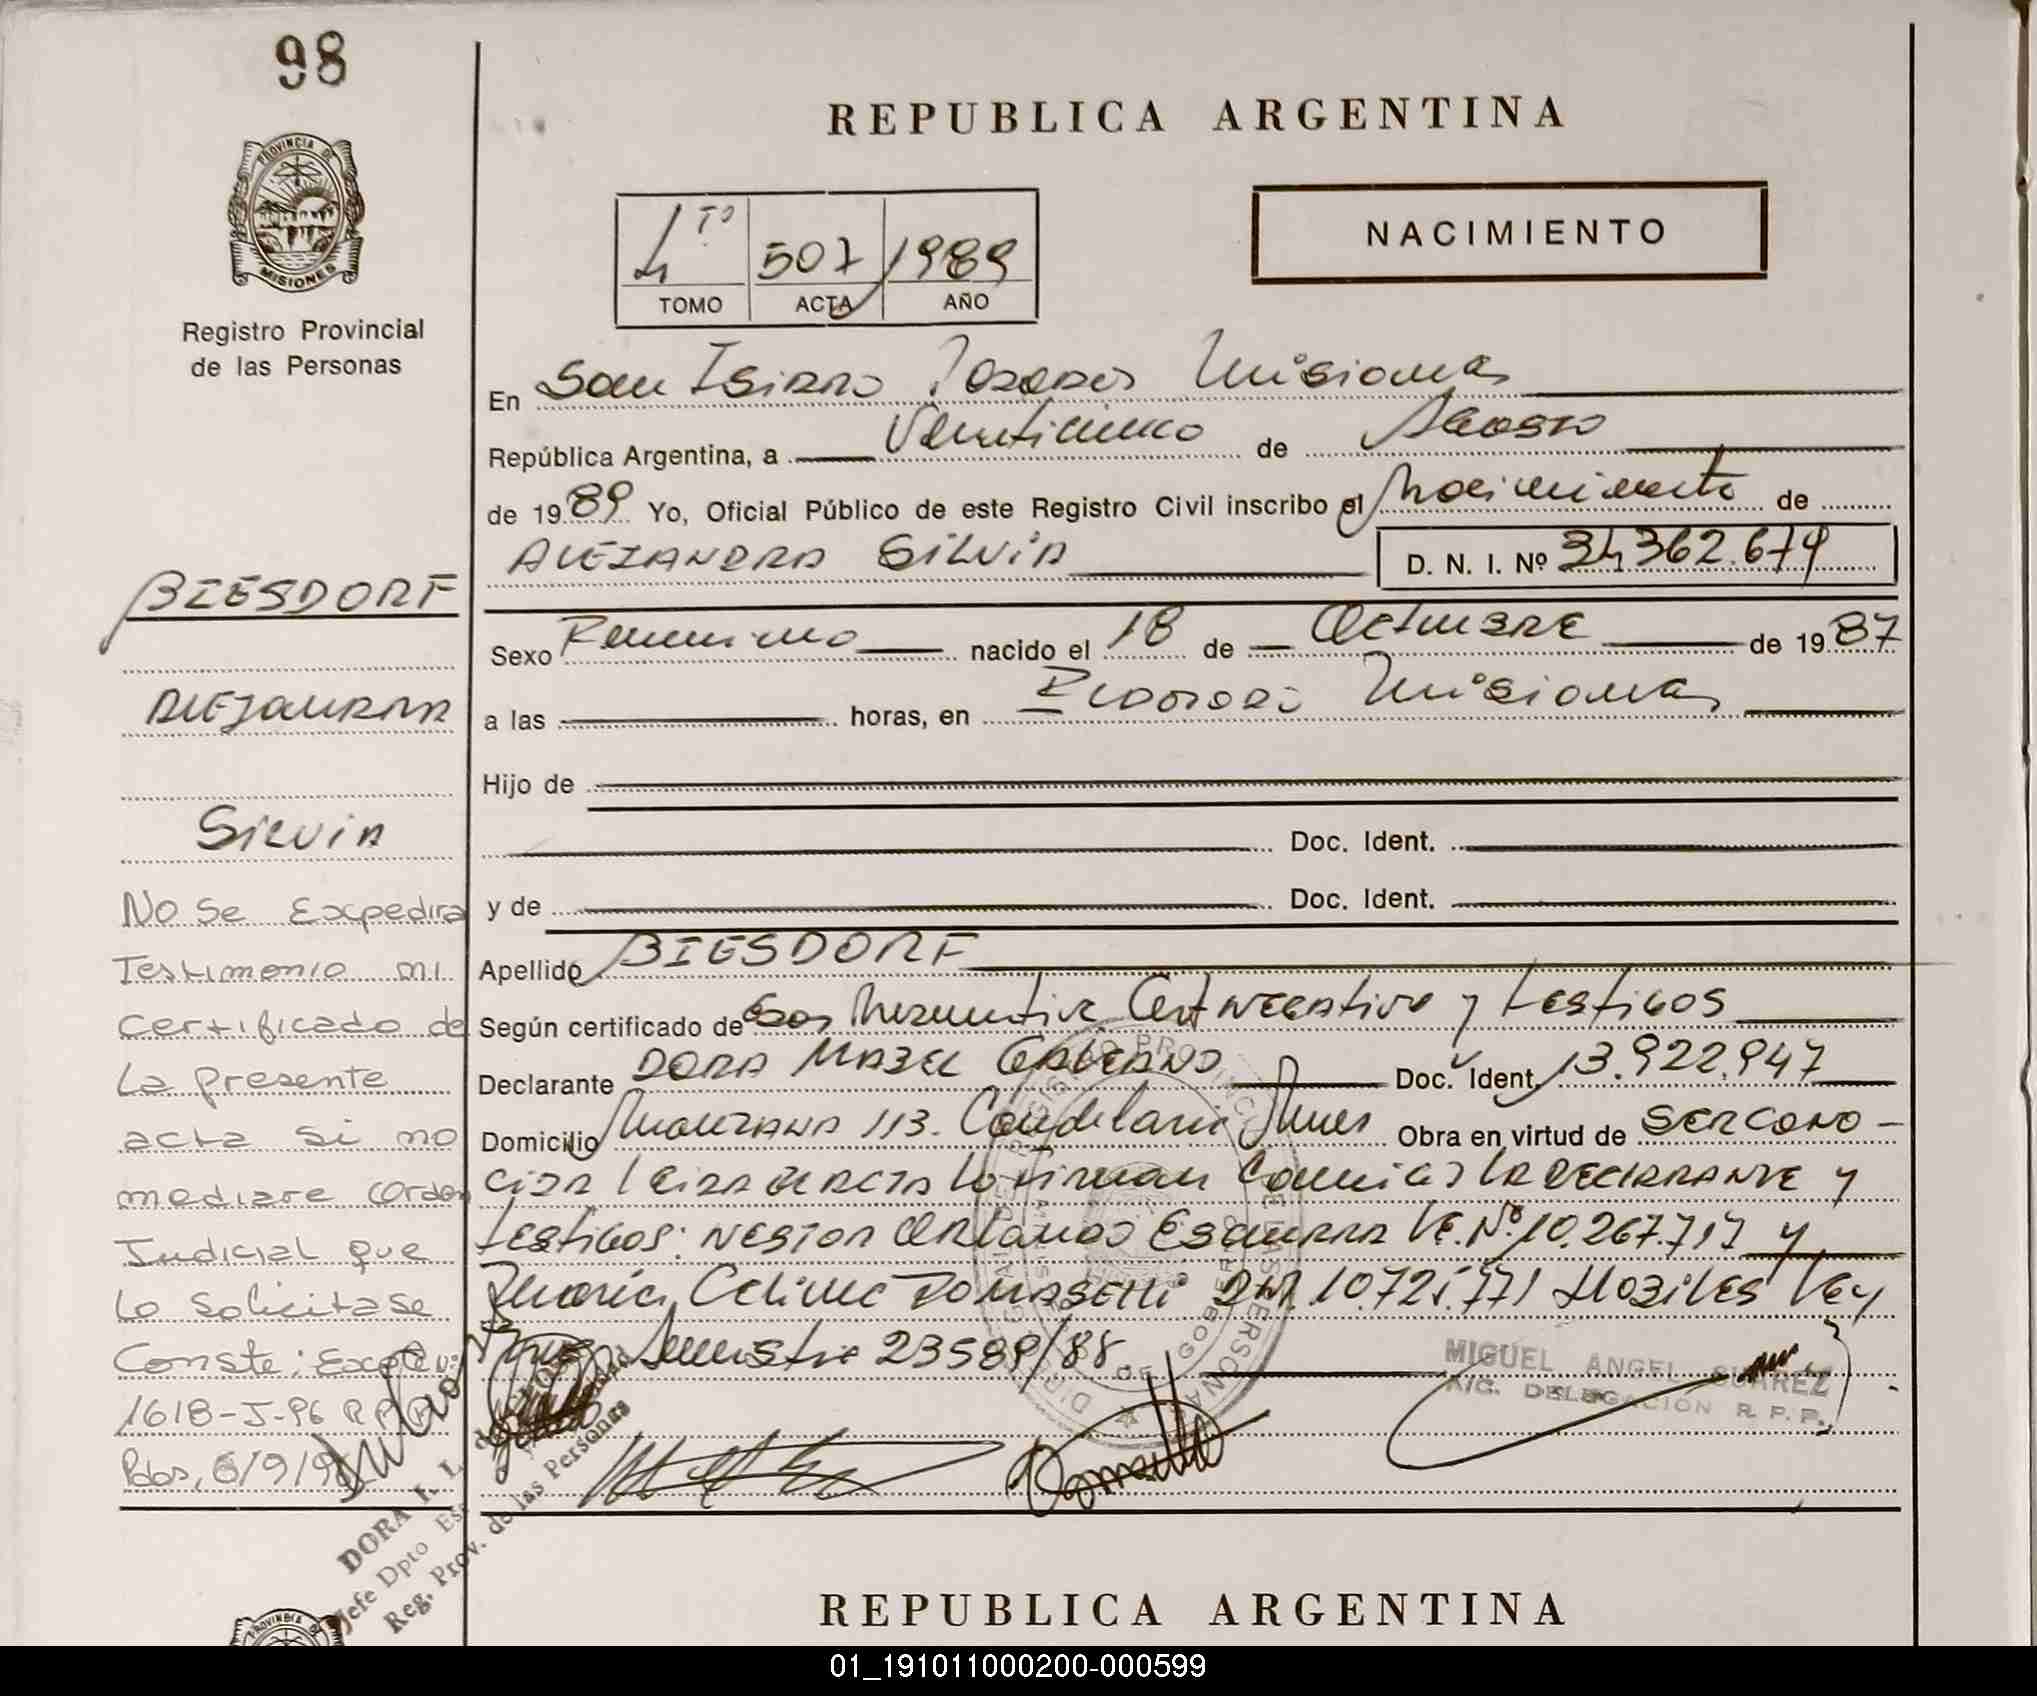 98
REPUBLICA ARGENTINA
PROVINCIA DE
MISIONES
Registro Provincial
de las Personas
4 TO 507 1989
TOMO ACTA AÑO
NACIMIENTO
En San Isidro Posadas Misiones
República Argentina, a Veinticinco de Agosto
de 1989 Yo, Oficial Público de este Registro Civil inscribo el Nacimiento de
ALEJANDRA SILVIA D. N. I. Nº 34.362.679
Sexo Femenino nacido el 18 de Octubre de 1987
a las horas, en Eldorado Misiones
Hijo de
Doc. Ident.
y de Doc. Ident.
Apellido BIESDORF
Según certificado de Cert Negativo y testigos
Declarante DORA MABEL Doc. Ident. 13.922.947
Domicilio Manzana 113. Candelaria Mnes Obra en virtud de SE RECONO-
CIDA LEIDA EL ACTA La firman Conmigo LA DECLARANTE y
testigos: NESTOR ORLANDO Ezcurra I.E. Nº 10.267.717 y
María Celina TOMASELLI DNI. 10.721.771 Hábiles Ley
23589/88.
BIESDORF
ALEJANDRA
SILVIA
No Se Expedira
Testimonio ni
Certificado de
La presente
acta Si no
mediare Orden
Judicial que
Lo Solicitase
Conste: Expte
1618-J-96 R P P
Pdas, 6/9/96
MIGUEL ANGEL SUAREZ
DELEGACION R. P. P.
DORA
Jefe Dpto
Reg. Prov. de las Personas
REPUBLICA ARGENTINA
01_191011000200-000599